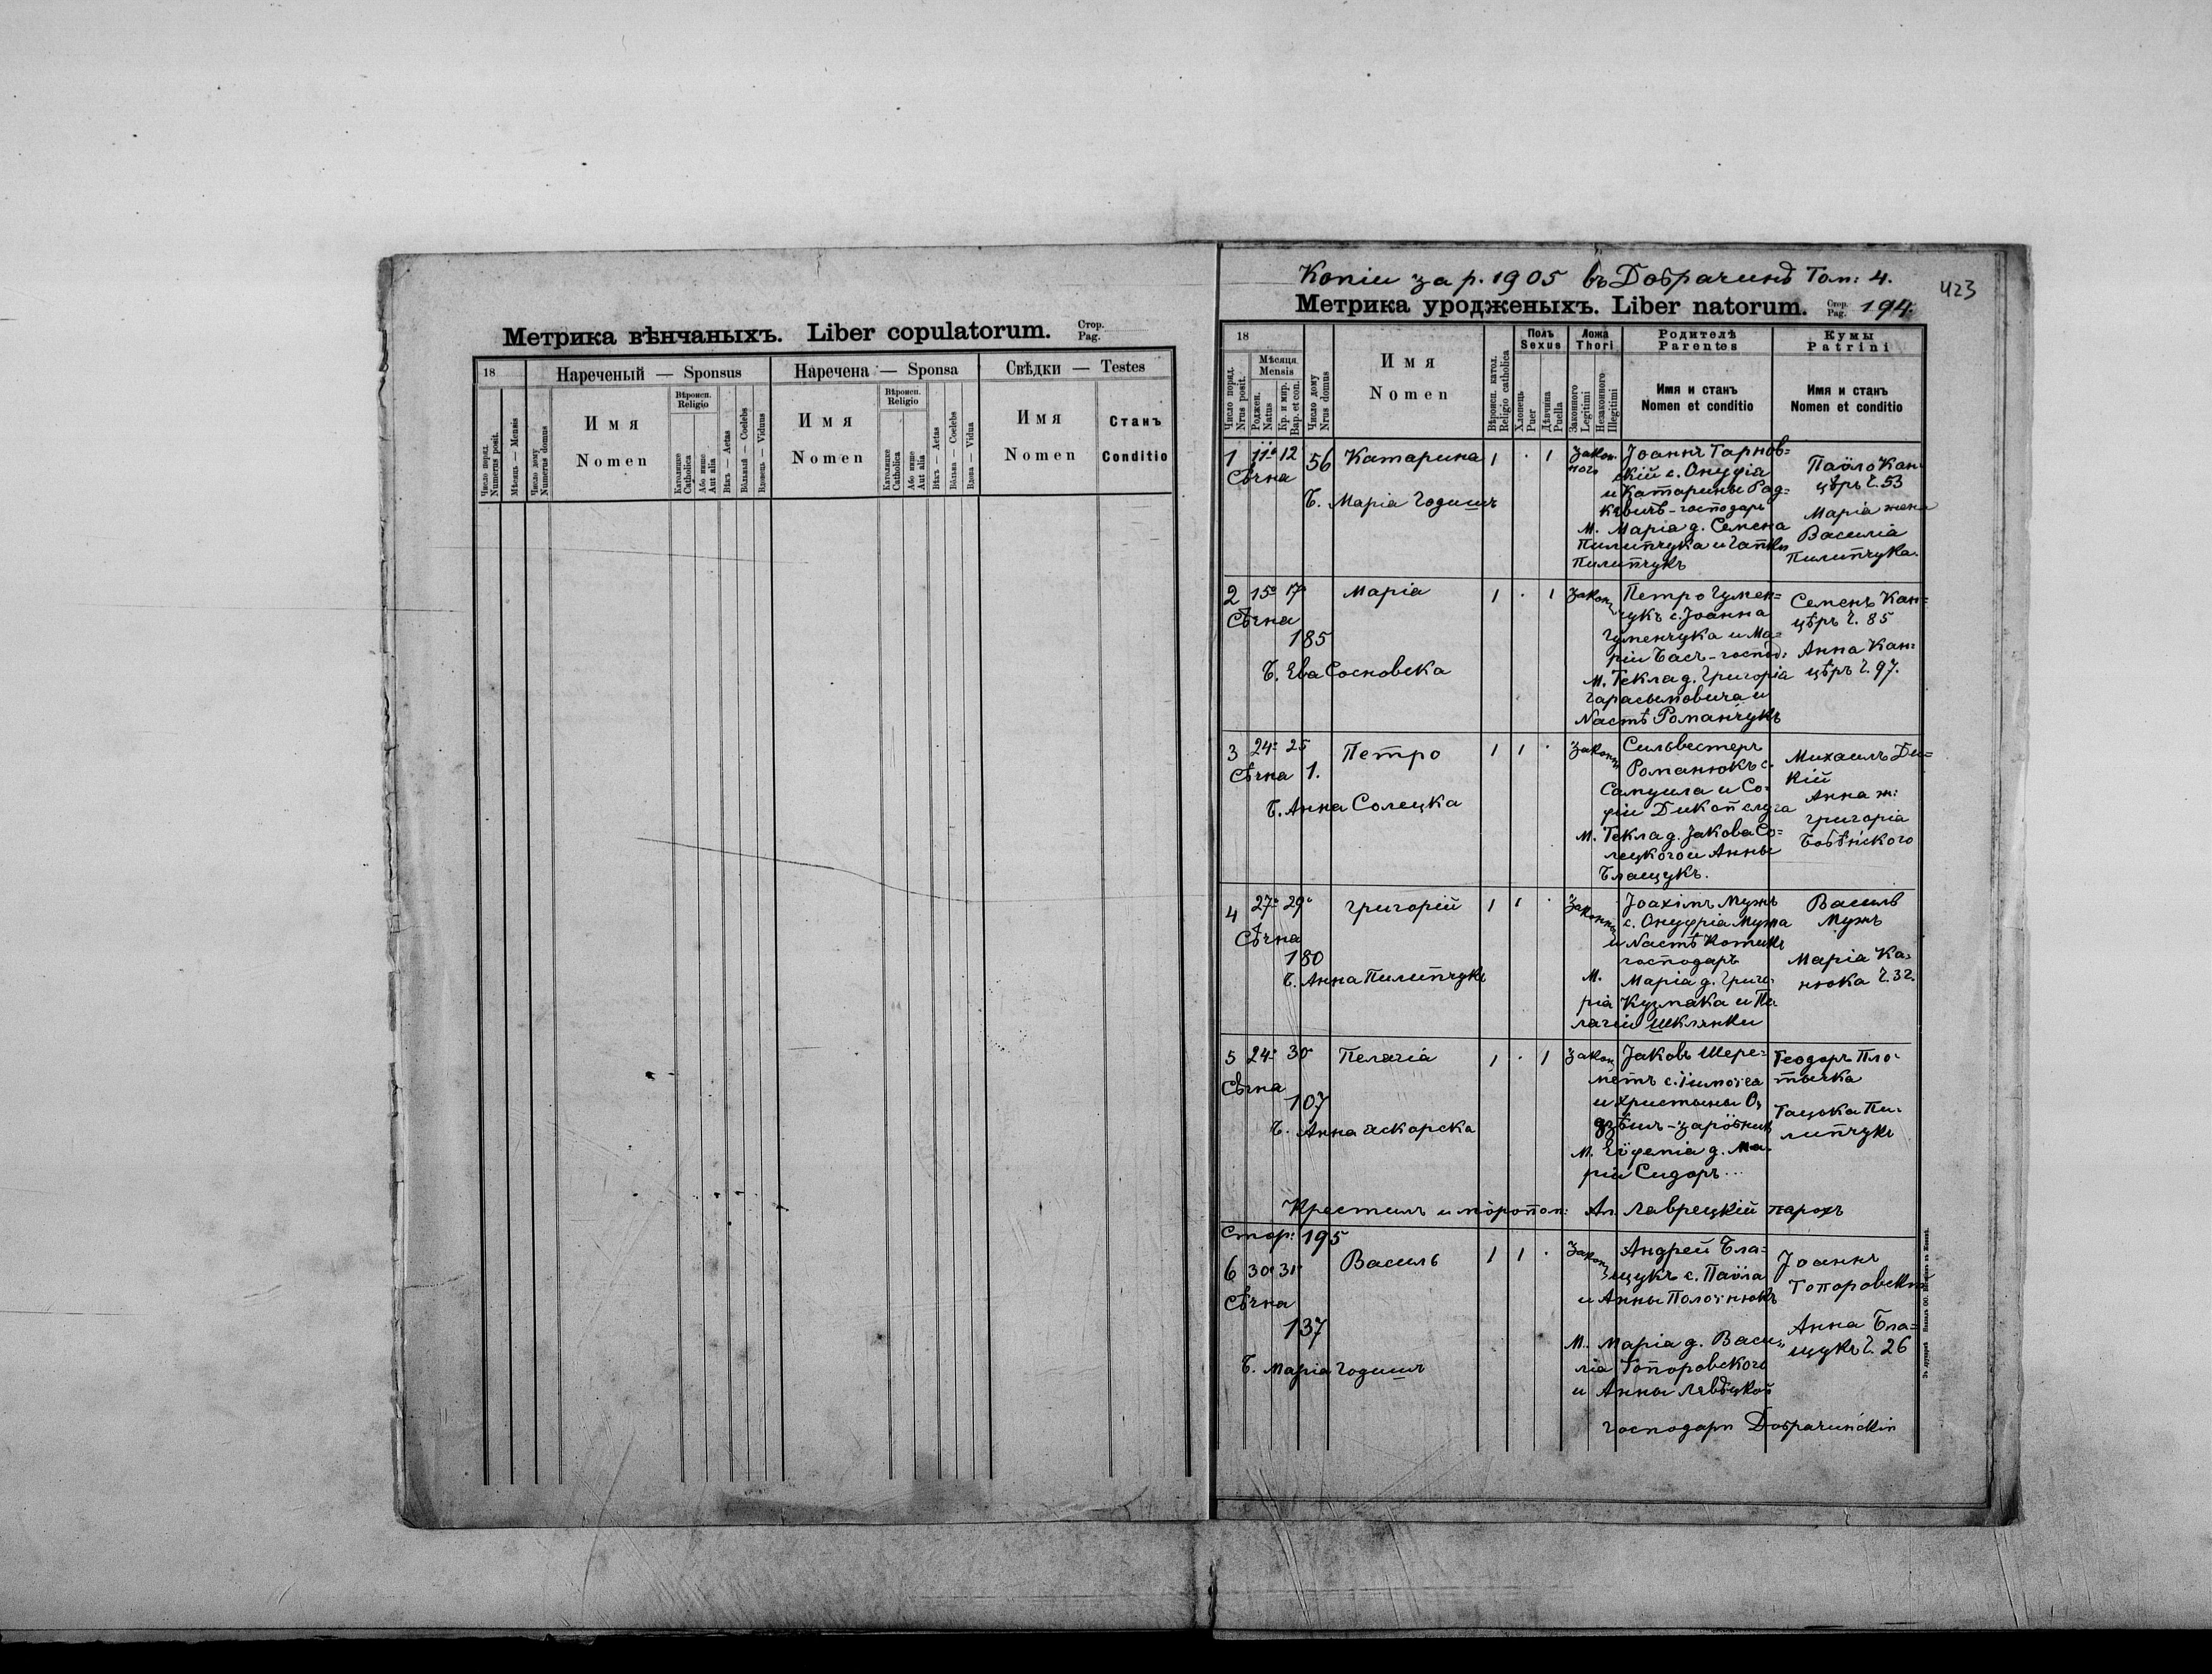 Метрика вѣнчаныхъ. Liber copulatorum. Стор. Pag.
18
Нареченый — Sponsus
Наречена — Sponsa
Свѣдки — Testes
Число поряд. Numerus posit.
Мѣсяць — Mensis
Число дому Numerus domus
Имя
Nomen
Вѣроисп. Religio
Католицке Catholica
Або инше Aut alia
Вѣкъ — Aetas
Вôльный — Coelebs
Вдовець — Viduus
Имя
Nomen
Вѣроисп. Religio
Католицке Catholica
Або инше Aut alia
Вѣкъ — Aetas
Вôльна — Coelebs
Вдова — Vidua
Имя
Nomen
Станъ
Conditio
Копіи за р. 1905 въ Добрачинѣ Том: 4.
423
Метрика уродженыхъ. Liber natorum. Стор. Pag. 194.
18
Число поряд. Nrus posit.
Мѣсяця Mensis
Роджен. Natus
Кр. и мvр. Bap. et con.
Число дому Nrus domus
Имя
Nomen
Вѣроисп. катол. Religio catholica
Полъ Sexus
Хлопець Puer
Дѣвчина Puella
Ложа Thori
Законного Legitimi
Незаконного Illegitimi
Родителѣ
Parentes
Имя и станъ
Nomen et conditio
Кумы
Patrini
Имя и станъ
Nomen et conditio
1 11 12 56 Катарина 1 . 1 Закон
ного
Сѣчна
Б. Марія Годишъ
Іоаннъ Тарнов=
скій с. Онуфрія
и Катарины Рад=
кевичъ - господаръ
М. Марія д. Семена
Пилипчука и Гапки
Пилипчукъ
Павло Кан
цѣръ Ч. 53
Марія жена
Василія
Пилипчука.
2 15 17 Марія 1 . 1 Законн
Сѣчна
185
Б. Ева Сосновска
Петро Гумен=
чукъ с. Іоанна
Гуменчука и Ма=
ріи Басъ - господ:
М. Текла д. Григорія
Гарасымовича и
Настѣ Романчукъ
Семенъ Кан=
цѣръ Ч. 85
Анна Кан=
цѣръ Ч. 97.
3 24 25 Петро 1 1 . Законн
Сѣчна 1.
Б. Анна Солецка
Сильвестеръ
Романюкъ с.
Самуила и Со=
фіи Дикой слуга
М. Текла д. Якова Со=
лецкого и Анны
Блащукъ.
Михаилъ Ди=
кій
Анна ж:
Григорія
4 27 29 Григорій 1 1 . Законн
Сѣчна
180
Б. Анна Пилипчукъ
Іоахімъ Мужъ
с. Онуфрія Мужа
и Настѣ Котикъ
господаръ
М. Марія д. Григо=
рія Кузмака и Пе
лагіи Шклянки
Василь
Мужъ
Марія Ка=
нюка Ч. 32.
5 24 30 Пелагія 1 . 1 Закон
Сѣчна
107
Б. Анна
Яковъ Шере=
метъ с. Тимофея
и Христины
М. Евфемія д. Ма=
ріи Сидоръ
Теодоръ Пло=
тычка
Тацька Пи=
липчукъ
Крестилъ и мѵропом: Ал. Лаврецкій парохъ
Стор: 195
6 30 31 Василь 1 1 . Закон
Сѣчна
137
Б. Марія Годишъ
Андрей Бла=
щукъ с. Павла
и Анны
М. Марія д. Васи=
лія Топоровского
и Анны Лявѣцкой
господари Добрачинскіи
Іоаннъ
Топоровскій
Анна Бла=
щукъ Ч. 26